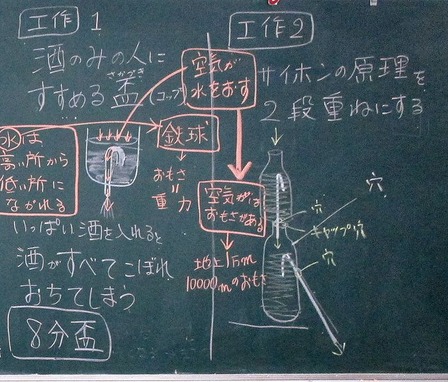 工作1
酒のみの人に
さかずき
すすめる盃(コップ)
空気が
水をおす
水は
高い所から
低い所に
ながれる
鉄球
おもさ
=
重力
いっぱい酒を入れると
酒がすべてこぼれ
おちてしまう
8分盃
工作2
サイホンの原理を
2段重ねにする
空気には
おもさがある
地上1m
10000mのおもさ
穴
穴
キャップ穴
穴